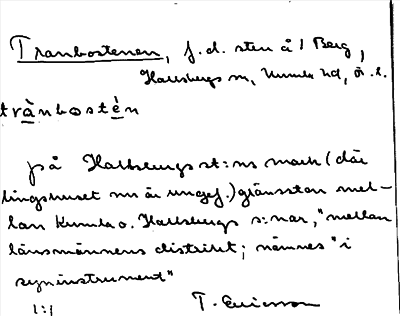 Tranbostenen, f.d. sten å 1 Berg,
Hallsbergs sn, Kumla hd, Ör. l.
trànbostèn
på Hallsbergs st:ns mark (där
tingshuset nu är ungef.) gränssten mel-
lan Kumla o. Hallsbergs s:nar, "mellan
länsmännens distrikt; nämnes "i
syninstrument"
T. Ericsson